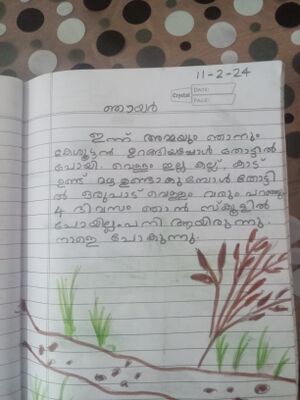 11-2-24
Crystal DATE:
PAGE:
ഞായർ
ഇന്ന് അമ്മയും ഞാനും
കേശൂട്ടൻ ഉറങ്ങിയപ്പോൾ തോട്ടിൽ
പോയി വെള്ളം ഇല്ല കല്ല്, കാട്
ഉണ്ട് മഴ ഉണ്ടാകുമ്പോൾ തോട്ടി
ൽ ഒരുപാട് വെള്ളം വരും പറഞ്ഞു.
4 ദിവസം ഞാൻ സ്കൂളിൽ
പോയില്ല പനി ആയിരുന്നു.
നാളെ പോകുന്നു.